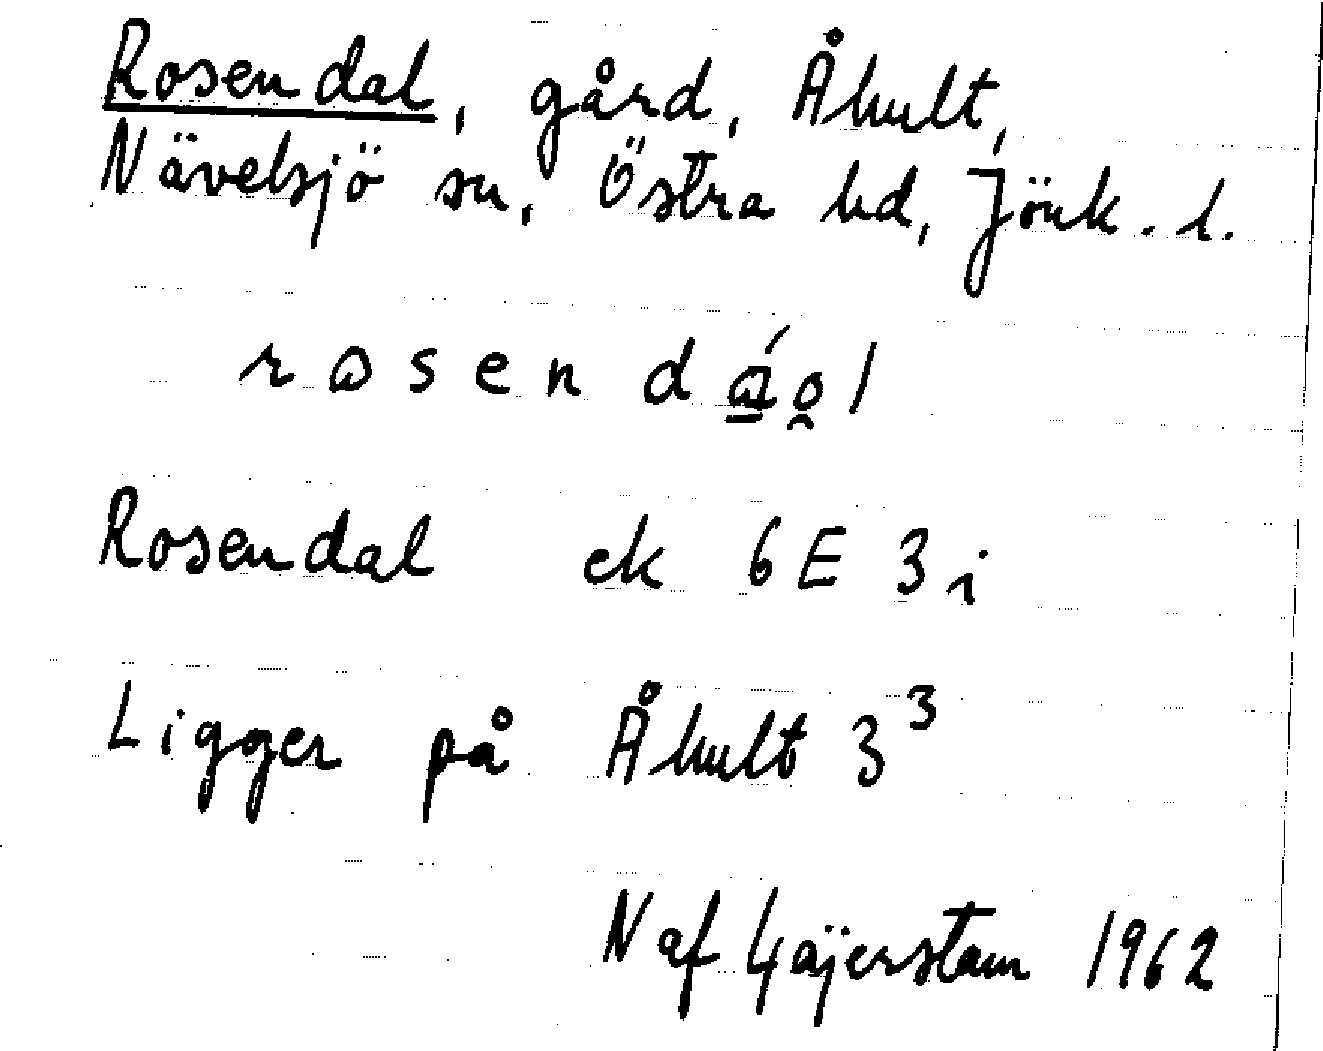 Rosendal, gård, Åhult,
Nävelsjö sn, Östra hd, Jönk. l.
rosendáo̭l
Rosendal ek 6E 3i
Ligger på Åhult 3³
N af Gäjerstam 1962